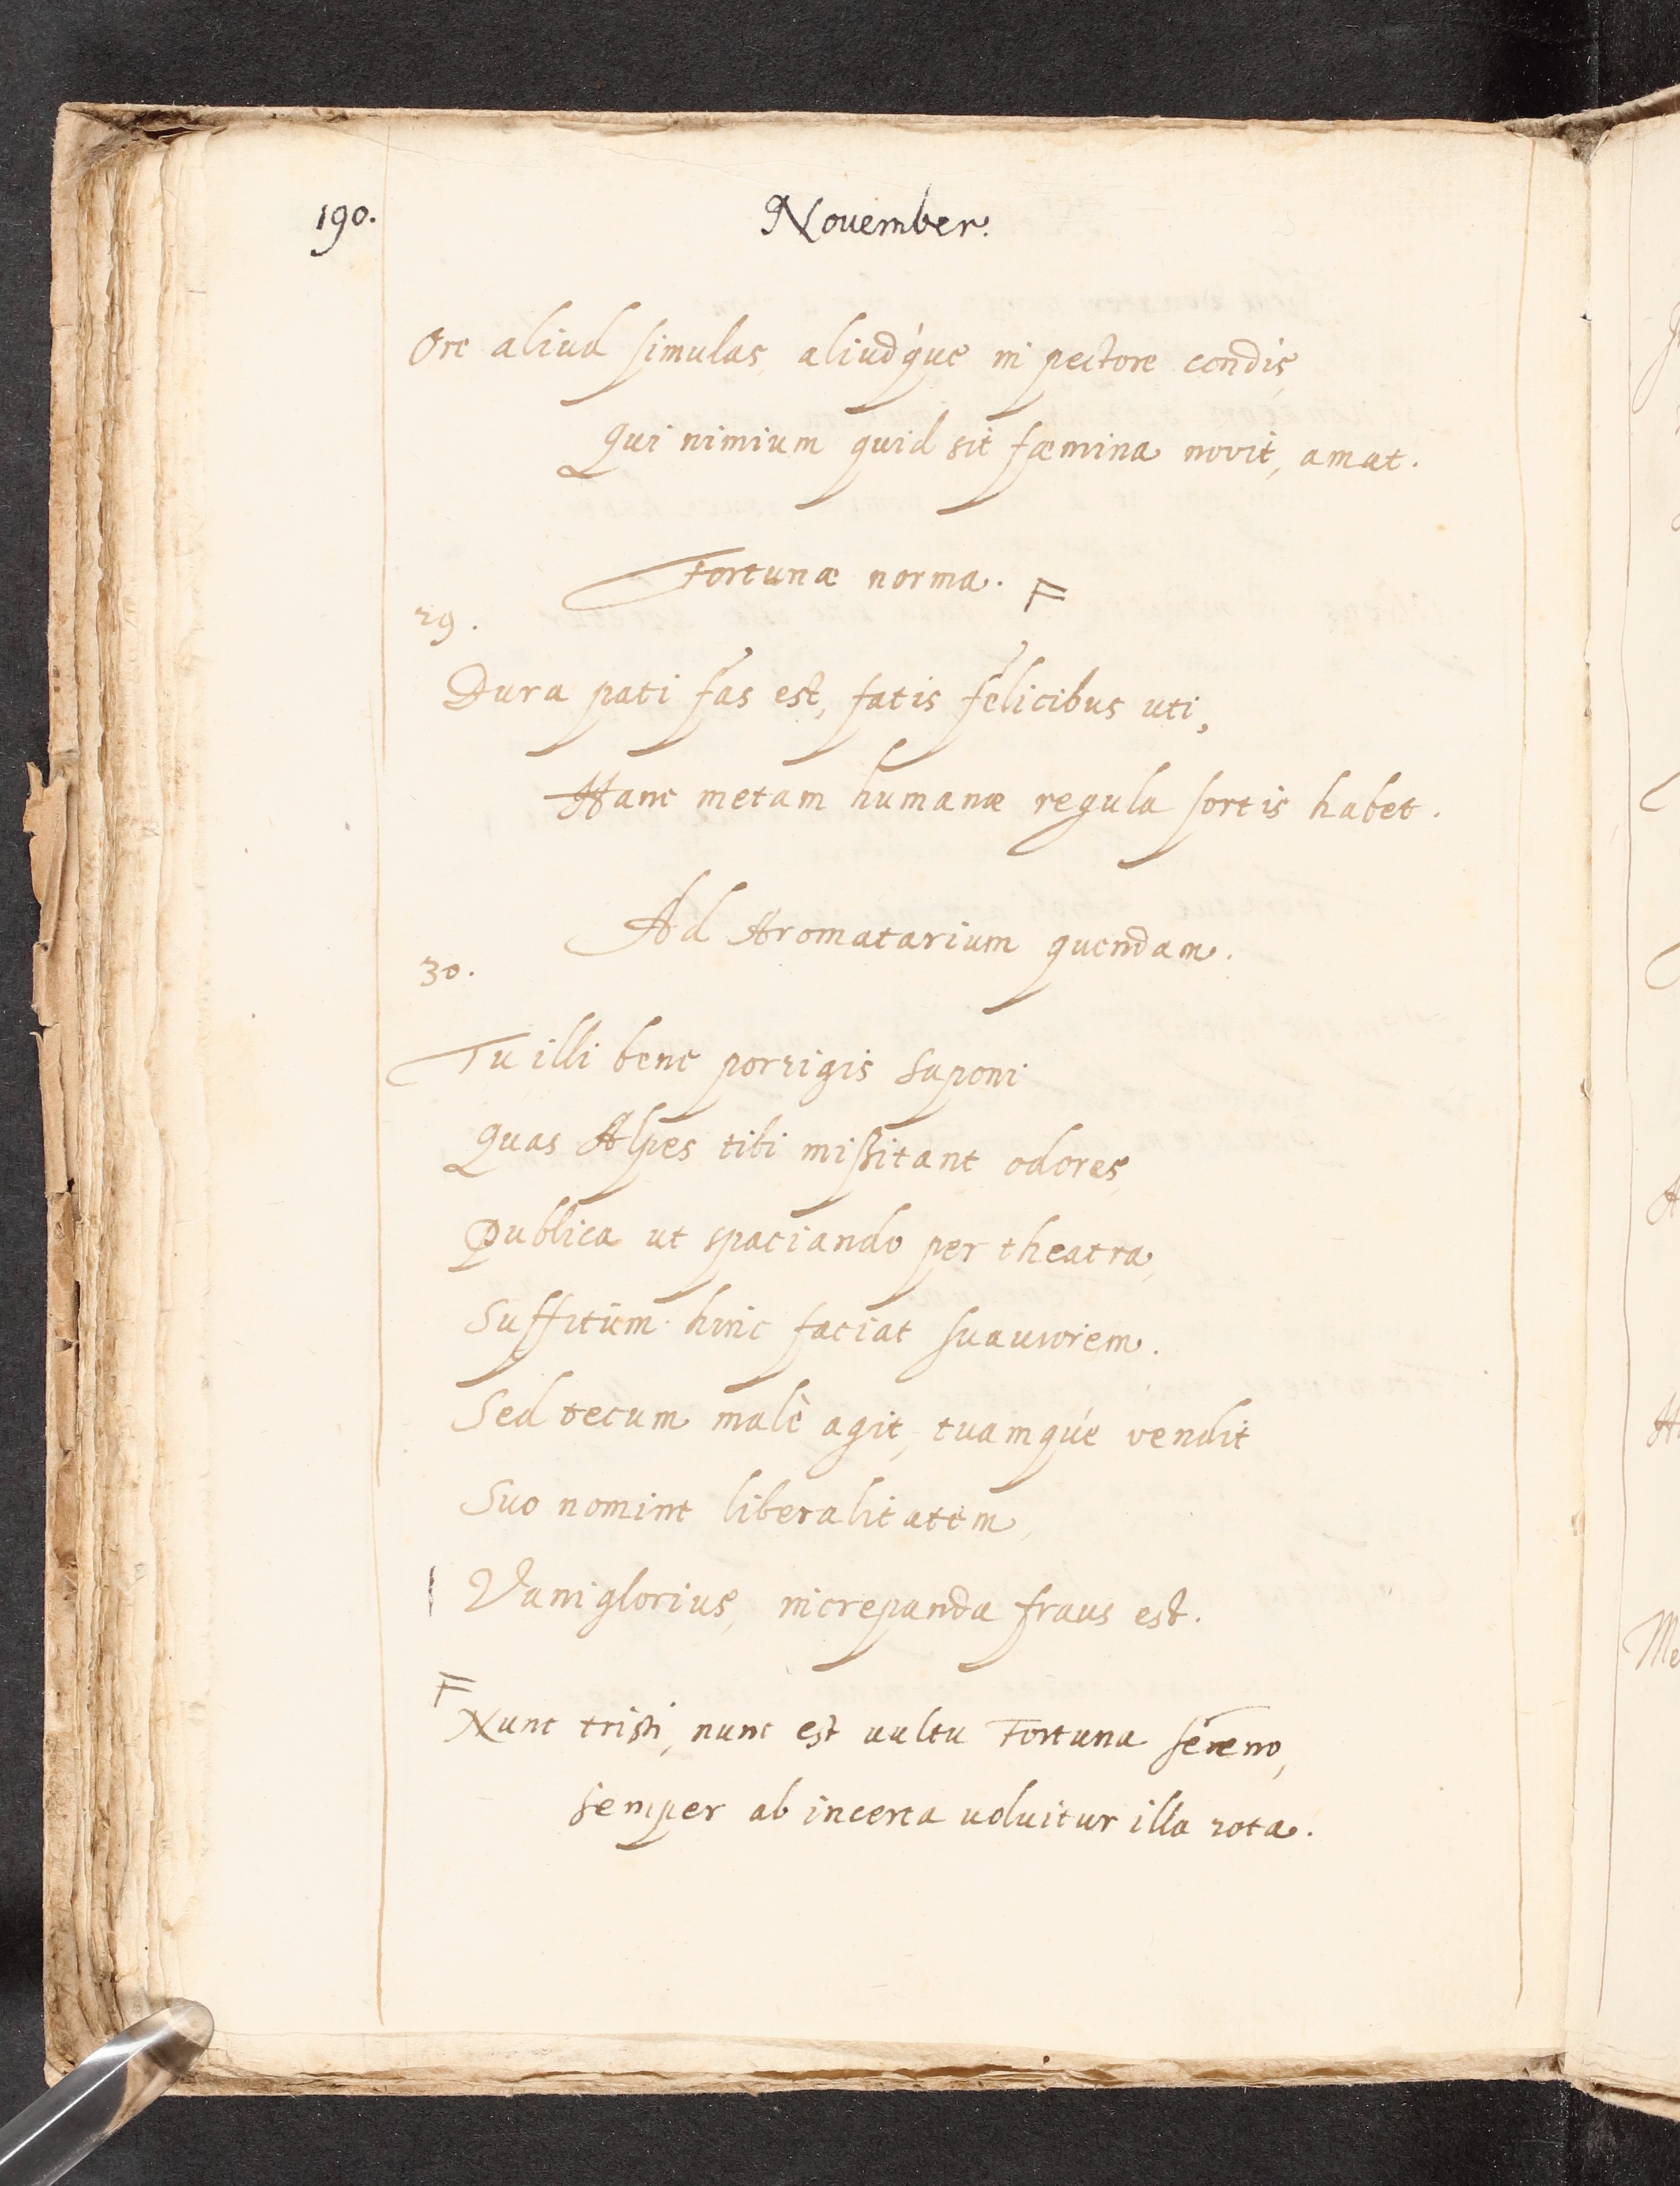 190.
November.
Ore aliud simulas, aliudq́ue in pectore condis,
Qui nimium quid sit fæmina novit, amat.
Fortunæ norma. F
29.
Dura pati fas est, fatis felicibus uti,
Hanc metam humanæ regula sortis habet.
Ad Aromatarium quendam.
30.
Tu illi bene porrigis Saponi
Quas Alpes tibi missitant odores,
Publica ut spaciando per theatra,
Suffitum hinc faciat suauiorem.
Sed tecum malè agit, tuamq́ue vendit
Suo nomine liberalitatem,
Vaniglorius, increpanda fraus est.
F
Nunc tristi, nunc est uultu Fortuna sereno,
semper ab incerta uoluitur illa rota.